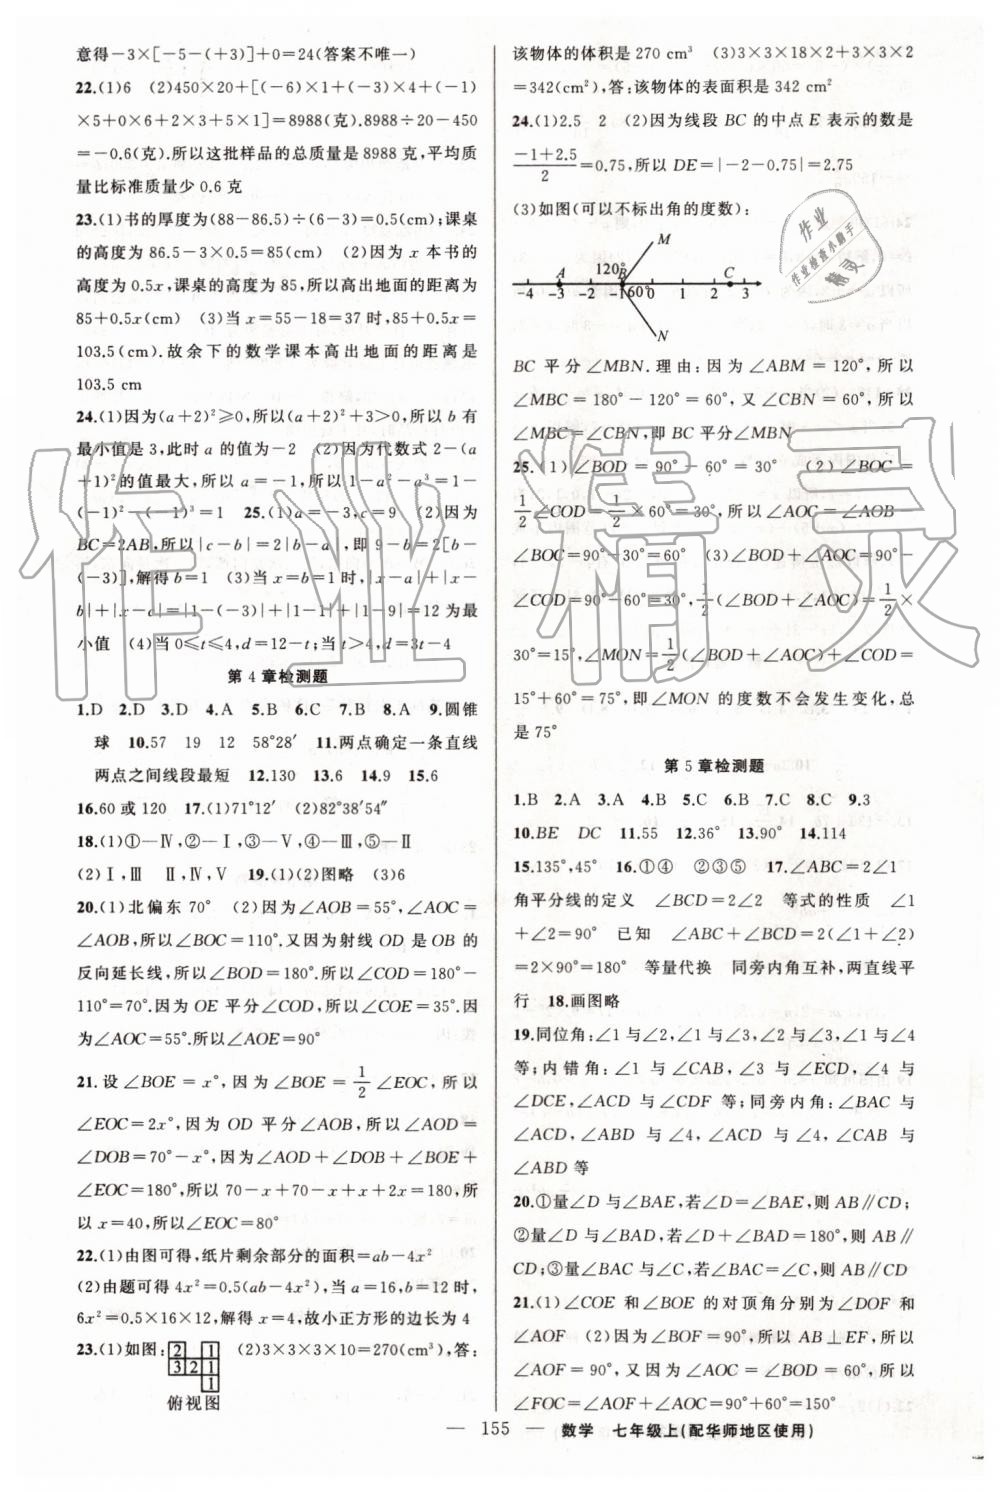 意得-3×[-5-(+3)]+0=24(答案不唯一)
22.(1)6　(2)450×20+[(-6)×1+(-3)×4+(-1)
×5+0×6+2×3+5×1]=8988(克).8988÷20-450
=-0.6(克).所以这批样品的总质量是8988克,平均质
量比标准质量少0.6克
23.(1)书的厚度为(88-86.5)÷(6-3)=0.5(cm);课桌
的高度为86.5-3×0.5=85(cm)　(2)因为x本书的
高度为0.5x,课桌的高度为85,所以高出地面的距离为
85+0.5x(cm)　(3)当x=55-18=37时,85+0.5x=
103.5(cm).故余下的数学课本高出地面的距离是
103.5 cm
24.(1)因为(a+2)²≥0,所以(a+2)²+3>0,所以b有
最小值是3,此时a的值为-2　(2)因为代数式2-(a
+1)²的值最大,所以a=-1,所以1-a²-a³=1-
(-1)²-(-1)³=1　25.(1)a=-3,c=9　(2)因为
BC=2AB,所以|c-b|=2|b-a|,即9-b=2[b-
(-3)],解得b=1　(3)当x=b=1时,|x-a|+|x-
b|+|x-c|=|1-(-3)|+|1-1|+|1-9|=12为最
小值　(4)当0≤t≤4,d=12-t;当t>4,d=3t-4
第4章检测题
1.D　2.D　3.D　4.A　5.B　6.C　7.B　8.A　9.圆锥
球　10.57　19　12　58°28′　11.两点确定一条直线
两点之间线段最短　12.130　13.6　14.9　15.6
16.60或120　17.(1)71°12′　(2)82°38′54″
18.(1)①—Ⅳ,②—Ⅰ,③—Ⅴ,④—Ⅲ,⑤—Ⅱ
(2)Ⅰ,Ⅲ　Ⅱ,Ⅳ,Ⅴ　19.(1)(2)图略　(3)6
20.(1)北偏东70°　(2)因为∠AOB=55°,∠AOC=
∠AOB,所以∠BOC=110°.又因为射线OD是OB的
反向延长线,所以∠BOD=180°.所以∠COD=180°-
110°=70°.因为OE平分∠COD,所以∠COE=35°.因
为∠AOC=55°.所以∠AOE=90°
21.设∠BOE=x°,因为∠BOE=1/2∠EOC,所以
∠EOC=2x°,因为OD平分∠AOB,所以∠AOD=
∠DOB=70°-x°,因为∠AOD+∠DOB+∠BOE+
∠EOC=180°,所以70-x+70-x+x+2x=180,所
以x=40,所以∠EOC=80°
22.(1)由图可得,纸片剩余部分的面积=ab-4x²
(2)由题可得4x²=0.5(ab-4x²),当a=16,b=12时,
6x²=0.5×16×12,解得x=4,故小正方形的边长为4
23.(1)如图:　(2)3×3×3×10=270(cm³),答:
2 1
3 2 1
1
俯视图
该物体的体积是270 cm³　(3)3×3×18×2+3×3×2
=342(cm²),答:该物体的表面积是342 cm²
24.(1)2.5　2　(2)因为线段BC的中点E表示的数是
(-1+2.5)/2=0.75,所以DE=|-2-0.75|=2.75
(3)如图(可以不标出角的度数):
M
120°
A B C
-4 -3 -2 -1 0 1 2 3
60°
N
BC平分∠MBN.理由:因为∠ABM=120°,所以
∠MBC=180°-120°=60°,又∠CBN=60°,所以
∠MBC=∠CBN,即BC平分∠MBN
25.(1)∠BOD=90°-60°=30°　(2)∠BOC=
1/2∠COD=1/2×60°=30°,所以∠AOC=∠AOB-
∠BOC=90°-30°=60°　(3)∠BOD+∠AOC=90°-
∠COD=90°-60°=30°,1/2(∠BOD+∠AOC)=1/2×
30°=15°,∠MON=1/2(∠BOD+∠AOC)+∠COD=
15°+60°=75°,即∠MON的度数不会发生变化,总
是75°
第5章检测题
1.B　2.A　3.A　4.B　5.C　6.B　7.C　8.C　9.3
10.BE　DC　11.55　12.36°　13.90°　14.114
15.135°,45°　16.①④　②③⑤　17.∠ABC=2∠1
角平分线的定义　∠BCD=2∠2　等式的性质　∠1
+∠2=90°　已知　∠ABC+∠BCD=2(∠1+∠2)
=2×90°=180°　等量代换　同旁内角互补,两直线平
行　18.画图略
19.同位角:∠1与∠2,∠1与∠3,∠2与∠3,∠1与∠4
等;内错角:∠1与∠CAB,∠3与∠ECD,∠4与
∠DCE,∠ACD与∠CDF等;同旁内角:∠BAC与
∠ACD,∠ABD与∠4,∠ACD与∠4,∠CAB与
∠ABD等
20.①量∠D与∠BAE,若∠D=∠BAE,则AB∥CD;
②量∠D与∠BAD,若∠D+∠BAD=180°,则AB∥
CD;③量∠BAC与∠C,若∠BAC=∠C,则AB∥CD
21.(1)∠COE和∠BOE的对顶角分别为∠DOF和
∠AOF　(2)因为∠BOF=90°,所以AB⊥EF,所以
∠AOF=90°,又因为∠AOC=∠BOD=60°,所以
∠FOC=∠AOF+∠AOC=90°+60°=150°
— 155 —　数学　七年级上(配华师地区使用)
作业精灵
作业
作业检查小助手
精灵